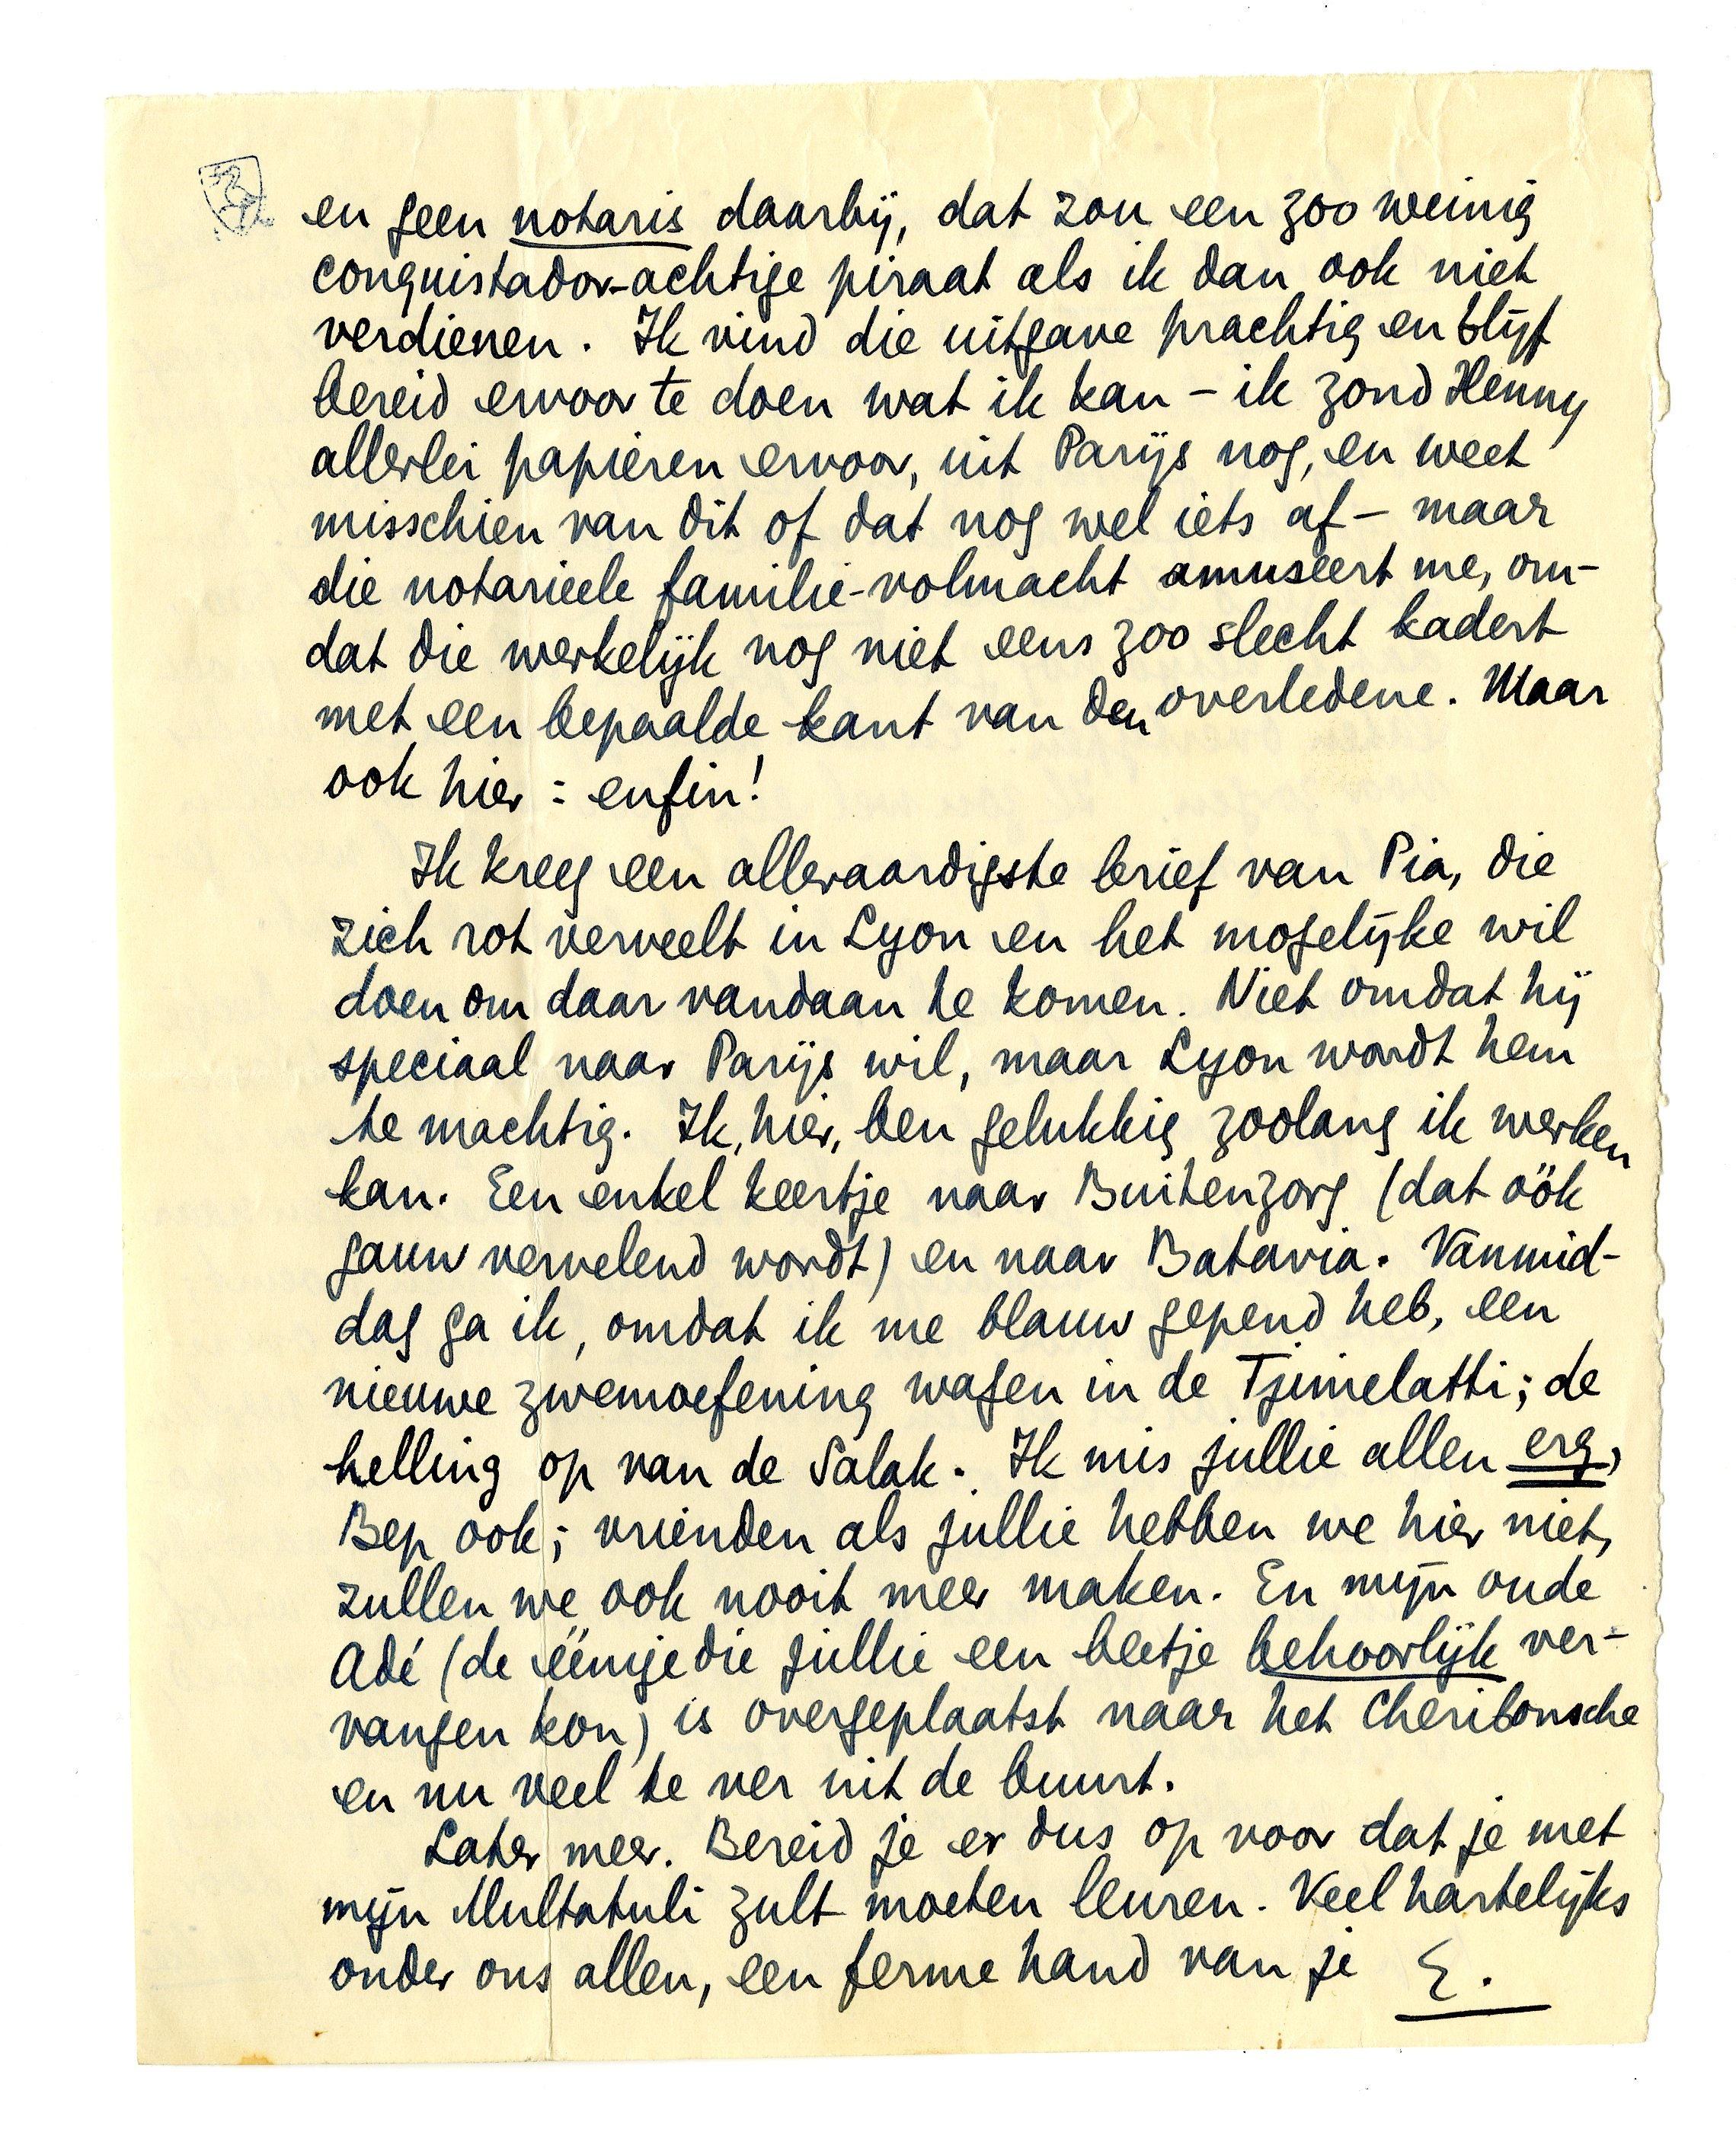 en geen notaris daarbij, dat zou een zoo weinig
conquistador-achtige piraat als ik dan ook niet
verdienen. Ik vind die uitgave prachtig en blijf
bereid ervoor te doen wat ik kan – ik zond Henny
allerlei papieren ervoor, uit Parijs nog, en weet
misschien van dit of dat nog wel iets af – maar
die notarieele familie-volmacht amuseert me, om-
dat die werkelijk nog niet eens zoo slecht kadert
met een bepaalde kant van den overledene. Maar
ook hier: enfin!
Ik kreeg een alleraardigste brief van Pia, die
zich rot verveelt in Lyon en het mogelijke wil
doen om daar vandaan te komen. Niet omdat hij
speciaal naar Parijs wil, maar Lyon wordt hem
te machtig. Ik, hier, ben gelukkig zoolang ik werken
kan. Een enkel keertje naar Buitenzorg (dat óók
gauw vervelend wordt) en naar Batavia. Vanmid-
dag ga ik, omdat ik me blauw gepend heb, een
nieuwe zwemoefening wagen in de Tjimelatti; de
helling op van de Salak. Ik mis jullie allen erg,
Bep ook; vrienden als jullie hebben we hier niet,
zullen we ook nooit meer maken. En mijn oude
Adé (de éénige die jullie een beetje behoorlijk ver-
vangen kon) is overgeplaatst naar het Cheribonsche
en nu veel te ver uit de buurt.
Later meer. Bereid je er dus op voor dat je met
mijn Multatuli zult moeten leuren. Veel hartelijks
onder ons allen, een ferme hand van je E.